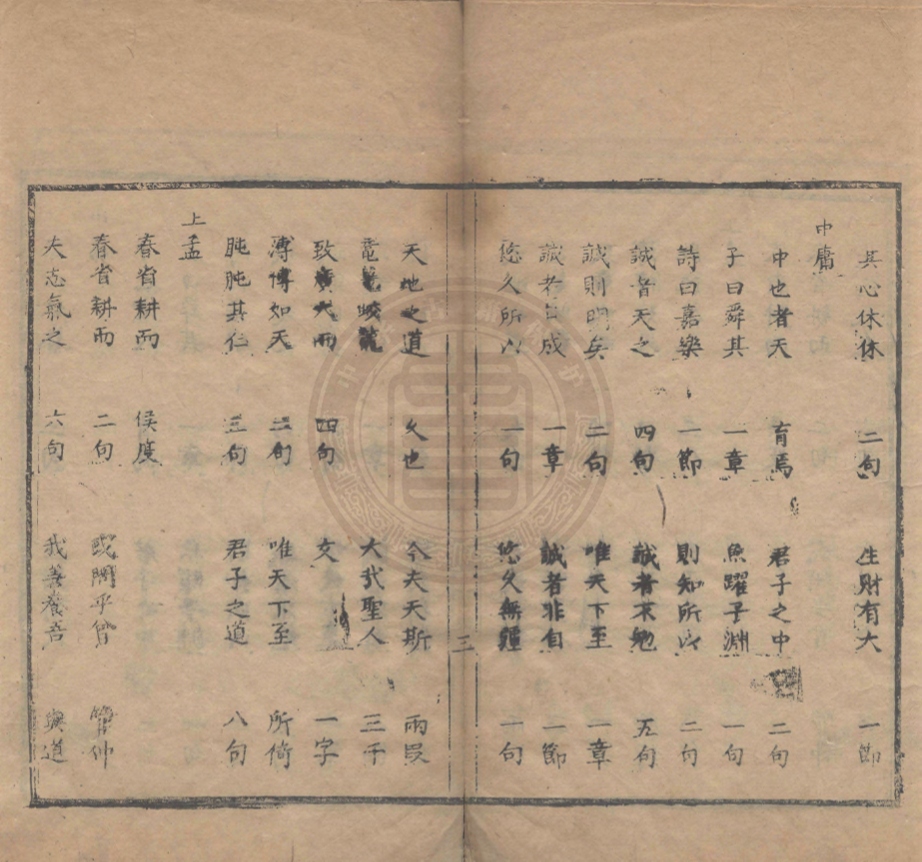 其心休休 二句 生財有大 一節
中庸
中也者天 育焉 君子之中 二句
子曰舜其 一章 魚躍于淵 一句
詩曰嘉樂 一節 則知所以 二句
誠者天之 四句 誠者不勉 五句
誠則明矣 二句 唯天下至 一章
誠者自成 一章 誠者非自 一節
悠久所以 一句 悠久無疆 一句
三
天地之道 久也 今夫天斯 兩段
黿鼉蛟龍 大哉聖人 三千
致廣大而 四句 文 一字
溥博如天 二句 唯天下至 所倚
肫肫其仁 三句 君子之道 八句
上孟
春省耕而 侯度
春省耕而 二句 管仲
夫志氣之 六句 我善養吾 與道